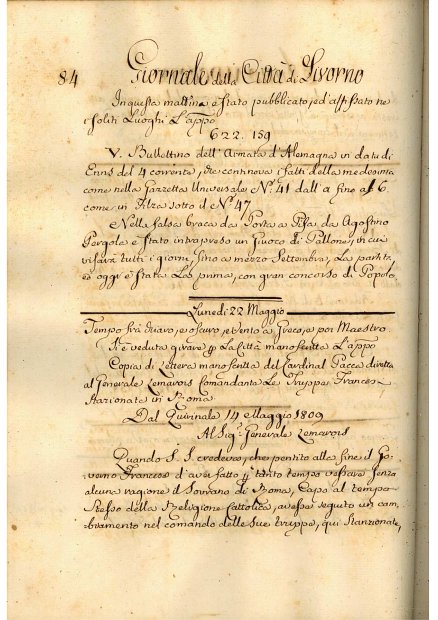 84 Giornale della Città di Livorno
In questa mattina è stato pubblicato, ed'affissato ne
i soliti Luoghi L'appo
622. 159
V. Bullettino dell'Armata d'Alemagna in data di
Enns del 4 corrente, che continova i fatti della medesima
come nella Gazzetta Universale N.° 41 dall'a fino al 6.
come in Filza sotto il N.° 47
Nella falsa braca da Porta a Pisa da Agostino
Pergola è stato intrapreso un Giuoco di Pallone, in cui
visarà tutti i giorni fino a mezzo Settembre, La partita,
ed oggi è stata La prima, con gran concorso di Popolo,
Lunedi 22 Maggio
Tempo frà chiaro, e oscuro, e vento a Greco, e poi Maestro.
Si è veduta girare p La Città manoscritta L'appo
Copia di Lettera manoscritta del Cardinal Pacca diretta
al Generale Lemarois Comandante Le Truppe Francesi
Stazionate in Roma
Dal Quirinale 14 Maggio 1809
Al Sig.r Generale Lemarois
Quando S. S. credeva, che pentito alla fine il Go-
verno Francese d'aver fatto p tanto tempo vessare senza
alcuna ragione il Sovrano di Roma, Capo al tempo
Stesso della Religione Cattolica, avesse seguito un cam-
bramento nel comando delle sue truppe, qui stanzionate,